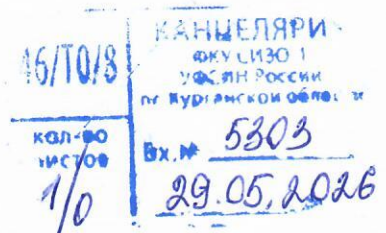 46/ТО/8
КАНЦЕЛЯРИ
ФКУ СИЗО 1
УФСИН России
по Курганской области
кол-во
листов
Вх.№ 5303
1/0
29.05.2026